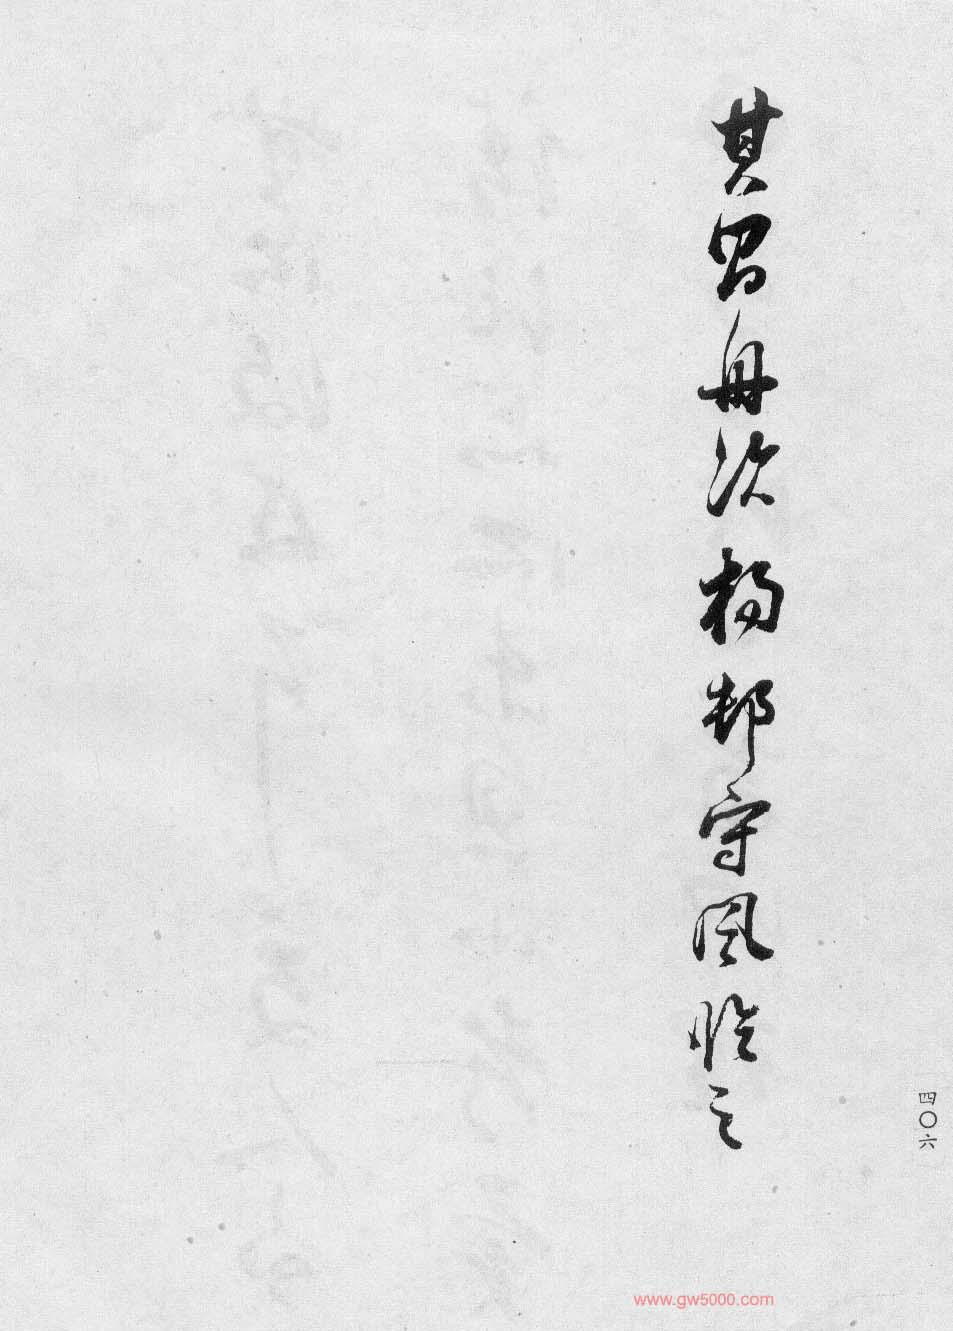 其昌舟次楊邨守風臨之
四〇六
www.gw5000.com